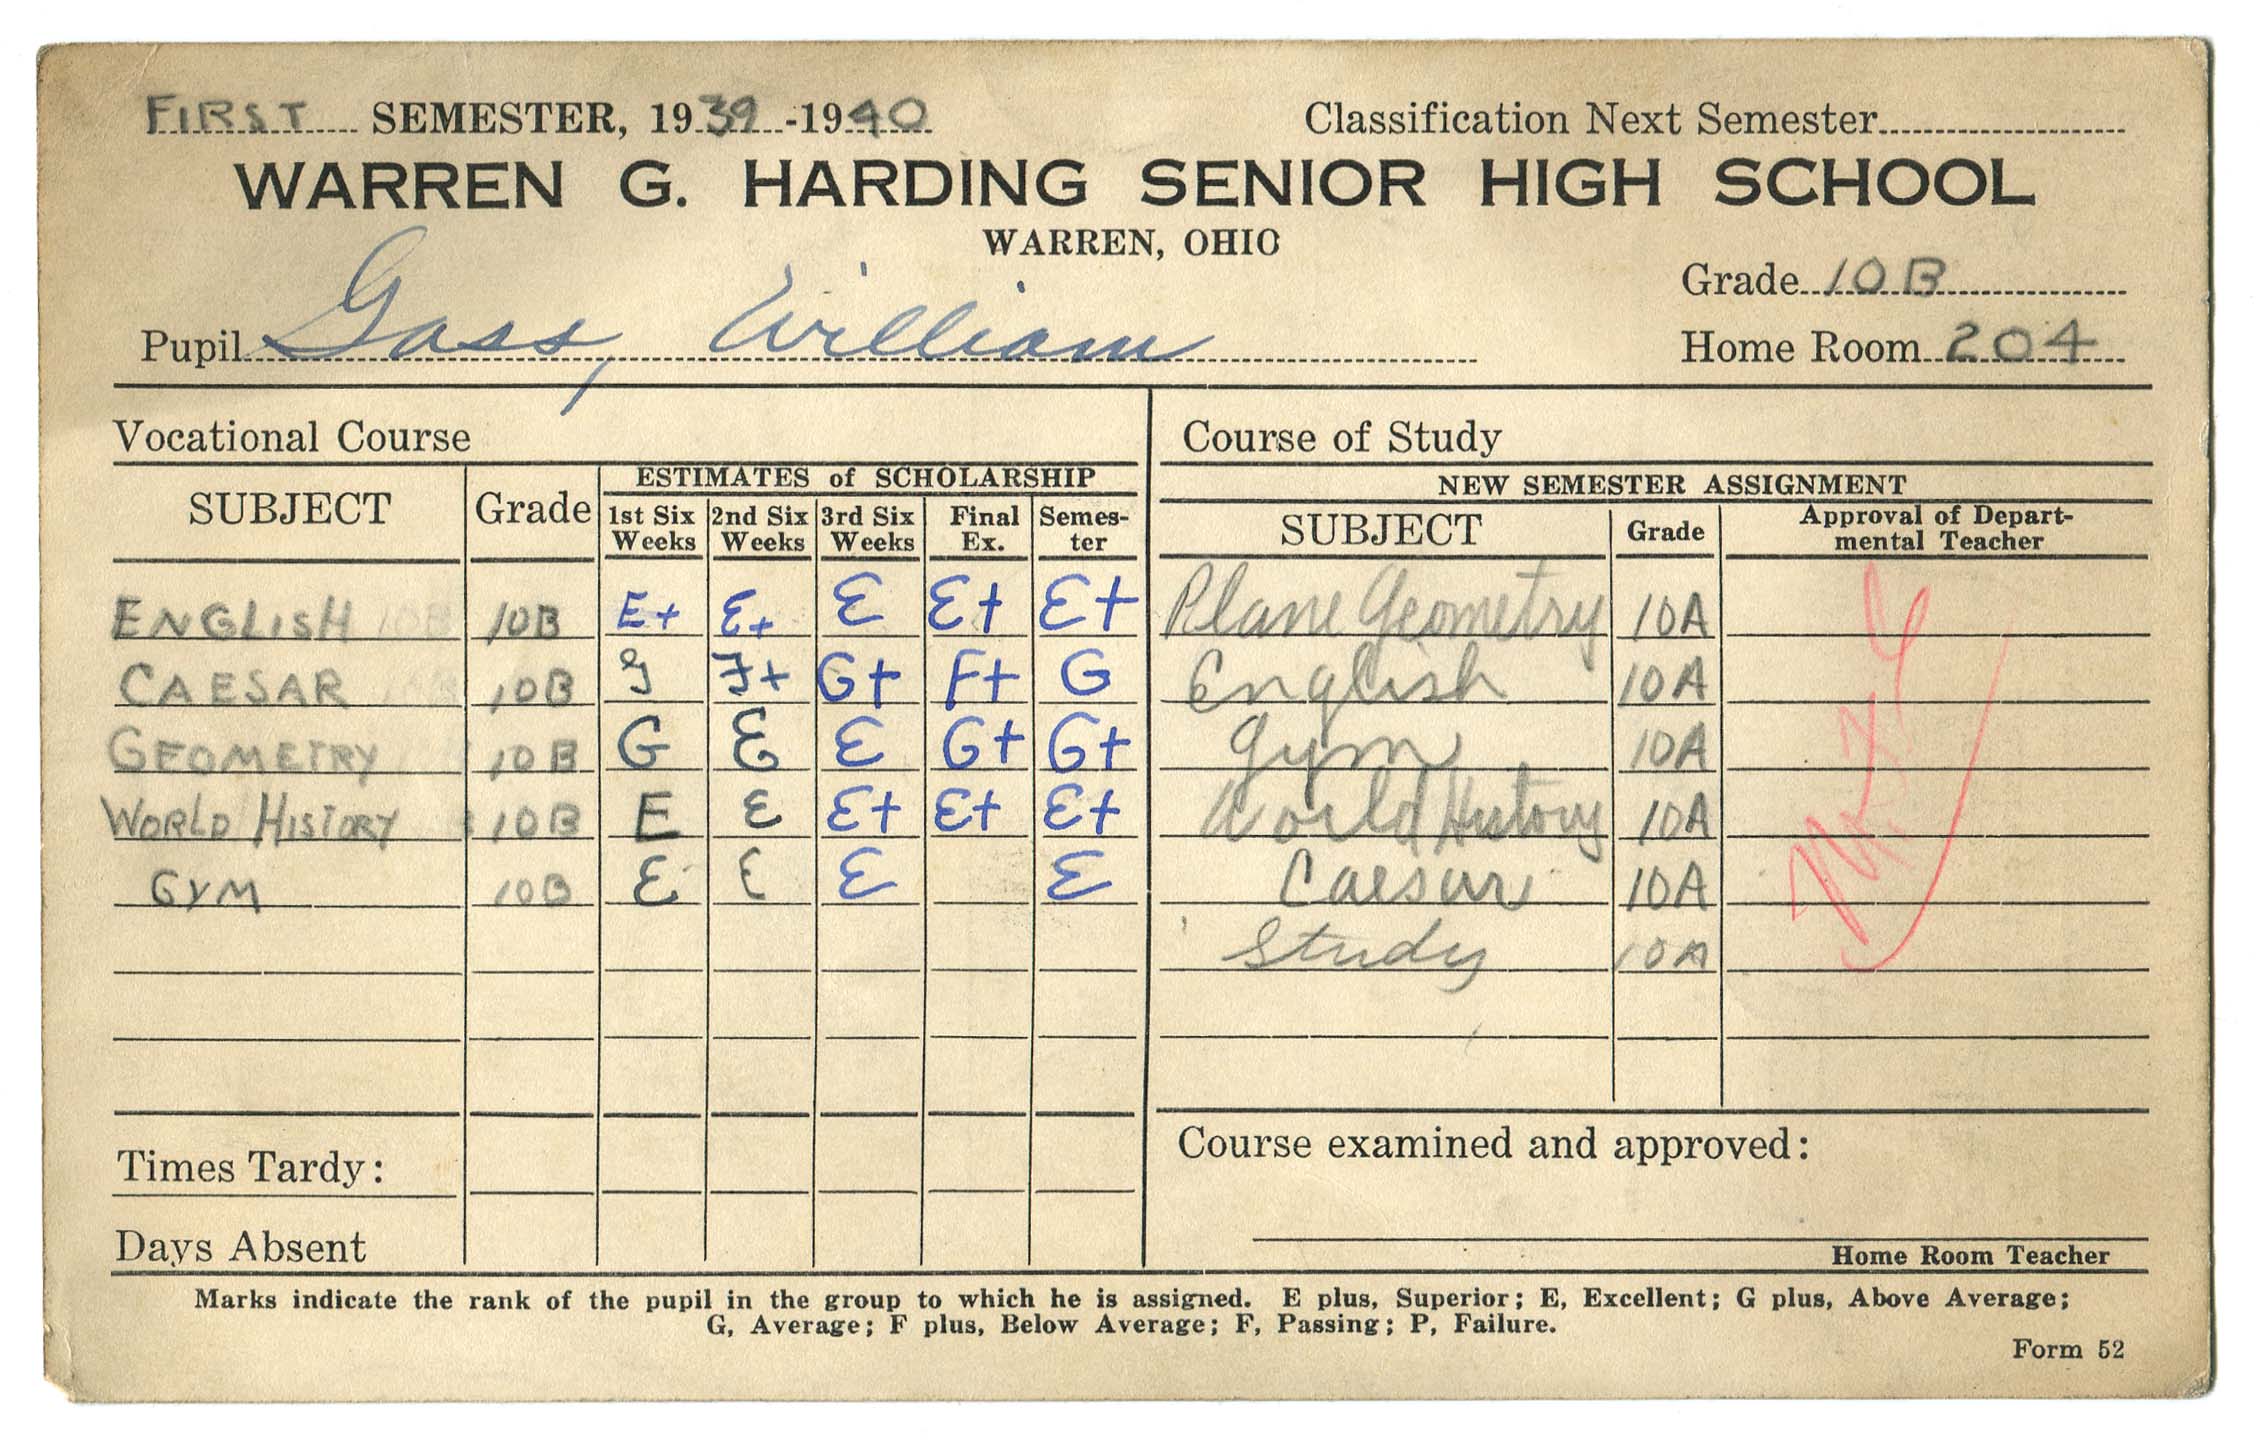 FIRST SEMESTER, 1939-1940 Classification Next Semester
WARREN G. HARDING SENIOR HIGH SCHOOL
WARREN, OHIO
Grade 10B
Pupil Gass, William Home Room 204
Vocational Course Course of Study
ESTIMATES of SCHOLARSHIP NEW SEMESTER ASSIGNMENT
SUBJECT Grade 1st Six Weeks 2nd Six Weeks 3rd Six Weeks Final Ex. Semester SUBJECT Grade Approval of Departmental Teacher
ENGLISH 10B E+ E+ E E+ E+ Plane Geometry 10A
CAESAR 10B G F+ G+ F+ G English 10A
GEOMETRY 10B G E E G+ G+ Gym 10A
WORLD HISTORY 10B E E E+ E+ E+ World History 10A
GYM 10B E E E E Caesar 10A
Study 10A
Times Tardy: Course examined and approved:
Days Absent Home Room Teacher
Marks indicate the rank of the pupil in the group to which he is assigned. E plus, Superior; E, Excellent; G plus, Above Average;
G, Average; F plus, Below Average; F, Passing; P, Failure.
Form 52